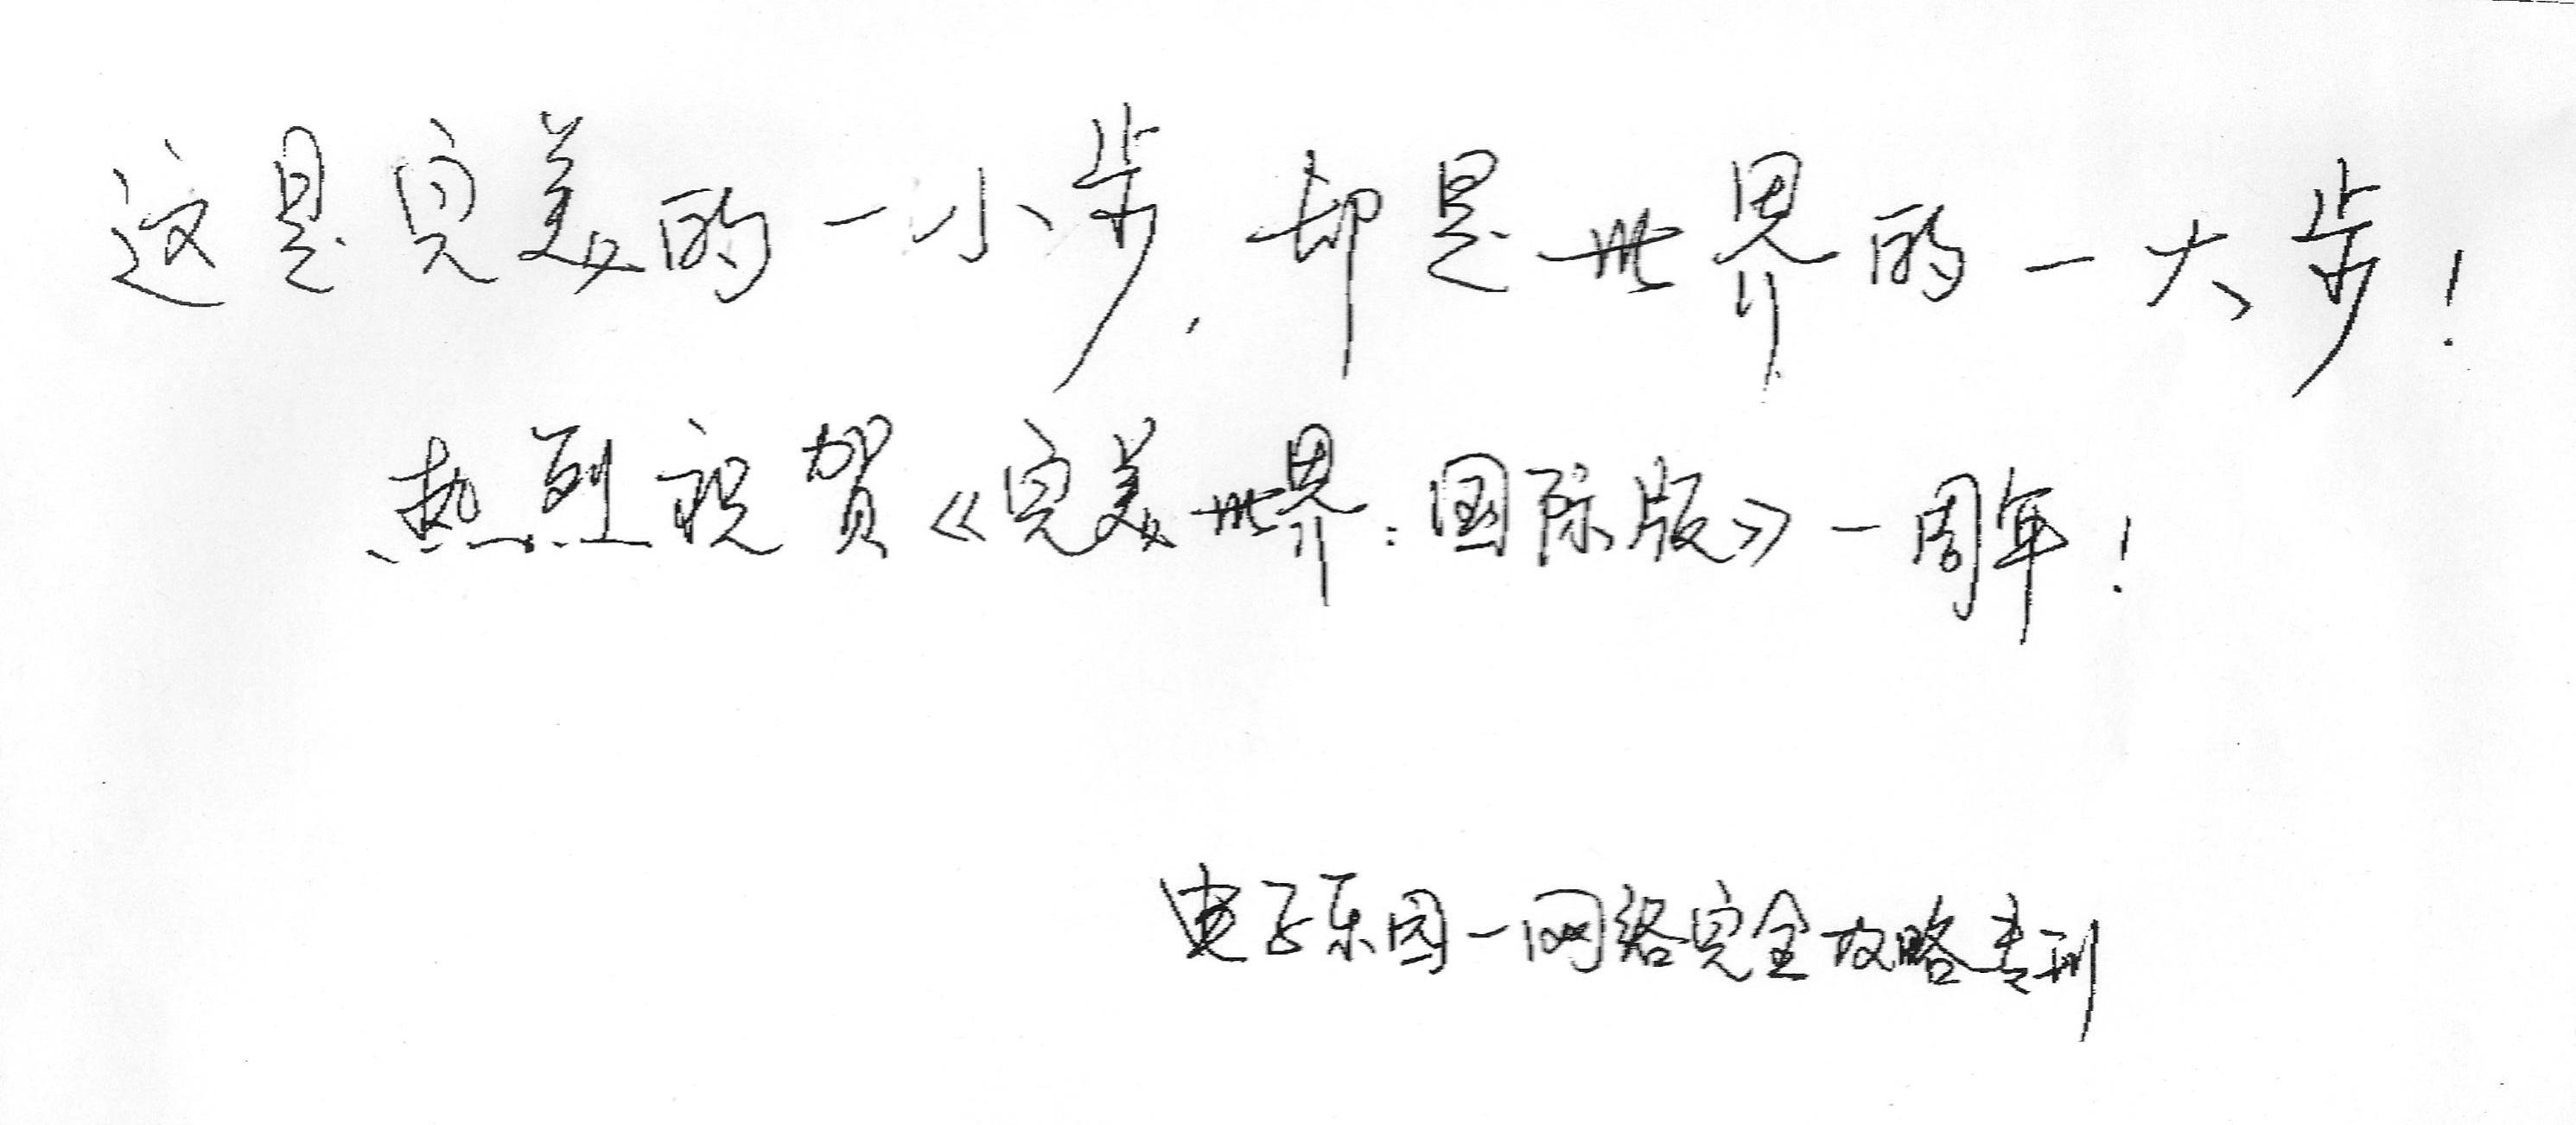 这是完美的一小步，却是世界的一大步！
热烈祝贺《完美世界：国际版》一周年！
电子乐园—网络完全攻略专刊